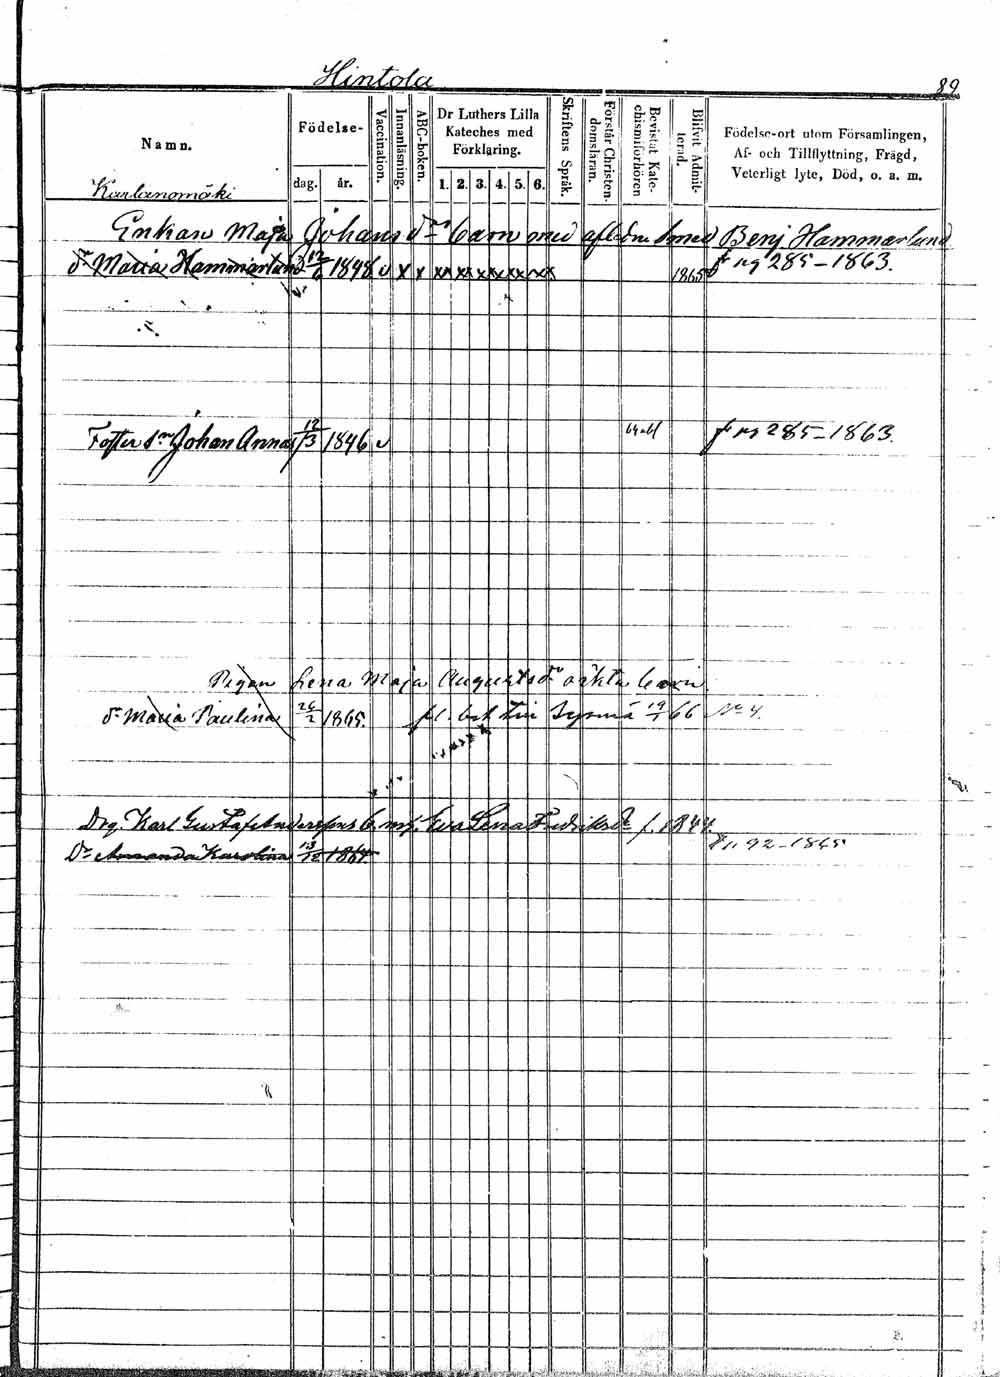 Hintola
89
Namn.
Födelse-
dag. år.
Vaccination.
Innanläsning.
ABC-boken.
Dr Luthers Lilla
Kateches med
Förklaring.
1. 2. 3. 4. 5. 6.
Skriftens Språk.
Förstår Christen-
domsläran.
Bevistat Kate-
chismiförhören
Blifvit Admit-
terad.
Födelse-ort utom Församlingen,
Af- och Tillflyttning, Frägd,
Veterligt lyte, Död, o. a. m.
Karlanomäki
Enkan Maja Johans dr barn med afl. Smed Benj Hammarlund
dr Maria Hammarlund 1848 v x x xx xx xx xx xx xx 1865 fr ng 285-1863.
Foster sn Johan Annas 12/3 1846 v fr ng 285-1863.
Pigan Lena Maja Augusts dr oäkta barn.
dr Maria Paulina 26/2 1865. till Sysmä 19/1 66 No 4.
Drg. Karl Gustaf Anderssons b. m. h. Eva Lena Fredriksdr f. 1844.
Dr Amanda Karolina 13/12 1864. 92-1865